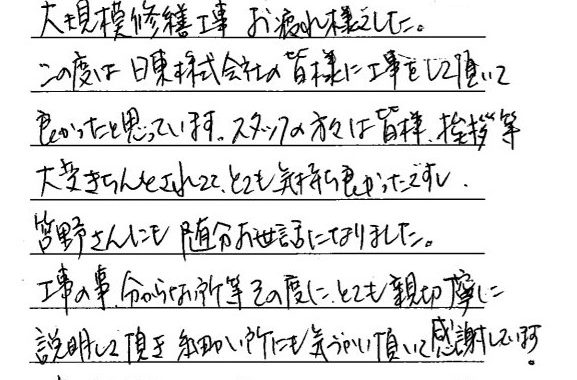 大規模修繕工事 お疲れ様でした。
この度は 日東株式会社の皆様に工事をして頂いて
良かったと思っています。スタッフの方々は皆様、挨拶等
大変きちんとされてて、とても気持ち良かったですし、
菅野さんにも 随分お世話になりました。
工事の事、分からない所等その度に、とても親切丁寧に
説明して頂き 細かい所にも気づかい頂いて感謝しています。